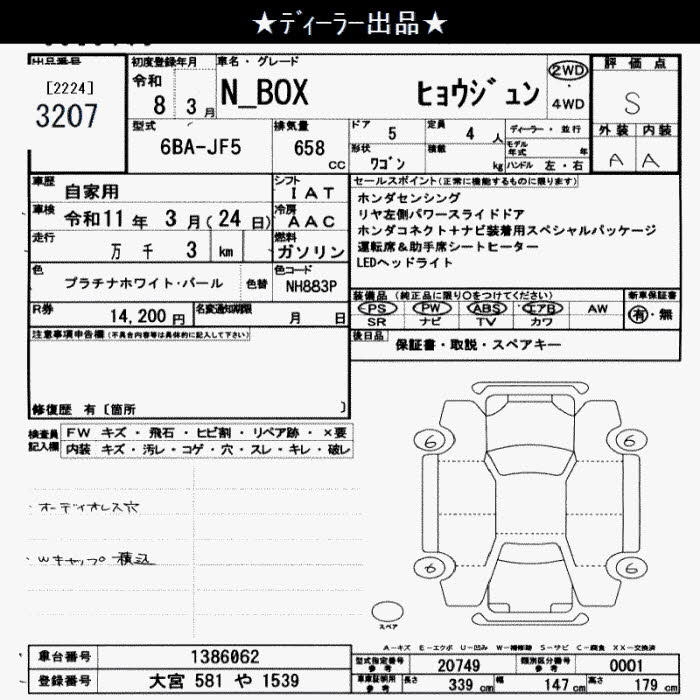 ★ディーラー出品★
出品番号
[2224]
3207
初度登録年月
令和
8 3月
車名・グレード
N_BOX ヒョウジュン
2WD
・
4WD
評価点
S
外装 内装
A A
型式
6BA-JF5
排気量
658 CC
ドア 5 定員 4 人
形状 ワゴン 積載 kg
ディーラー・並行
モデル年式 年
ハンドル 左・右
車歴 自家用
車検 令和11年 3月(24日)
走行 万 千 3 km
シフト IAT
冷房 AAC
燃料 ガソリン
色 プラチナホワイト・パール 色替
色コード NH883P
R券 14,200円
名変通知期限 月 日
セールスポイント(正常に機能するものに限ります)
ホンダセンシング
リヤ左側パワースライドドア
ホンダコネクト+ナビ装着用スペシャルパッケージ
運転席&助手席シートヒーター
LEDヘッドライト
装備品(純正品に限り○をつけてください)
PS PW ABS エアB AW
SR ナビ TV カワ
新車保証書
有・無
後日品 保証書・取説・スペアキー
注意事項申告欄(不具合内容等は具体的に記入して下さい)
修復歴 有〔箇所 〕
検査員記入欄
FW キズ・飛石・ヒビ割・リペア跡・×要
内装 キズ・汚レ・コゲ・穴・スレ・キレ・破レ
・オーディオレス穴
・Wキャップ積込
6 6
6 6
スペア
A-キズ E-エクボ U-凹み W-補修跡 S-サビ C-腐食 XX-交換済
車台番号 1386062
登録番号 大宮 581 や 1539
型式指定番号 参考 20749 類別区分番号 参考 0001
車車証明用 参考 長さ 339 cm 幅 147 cm 高さ 179 cm